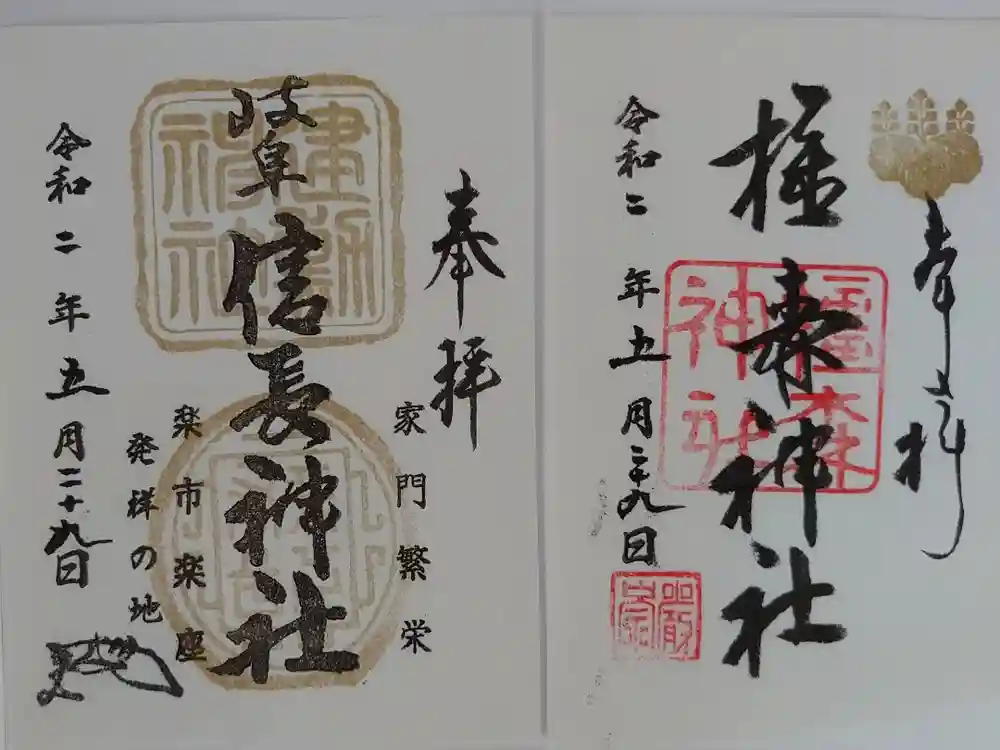 奉拝
橿森神社
橿森
神社
令和二年五月二十九日
奉拝
家門繁栄
岐阜信長神社
建勲
神社
楽市楽座
発祥の地
令和二年五月二十九日